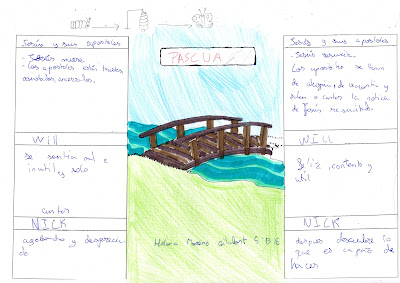 Jesús y sus apóstoles
- Jesús muere.
- Los apóstoles están tristes
asustados, encerrados.
Will
se sentía mal e
inutil y solo
antes
NICK
PASCUA
Jesús y sus apóstoles
- Jesús resucita.
Los apóstoles se llenan
de alegría, de
salen a contar la noticia
de Jesús resucitado.
WILL
feliz, contento y
util
NICK
despues descubre lo
que es capaz de
hacer
Helena Moreno 5º B